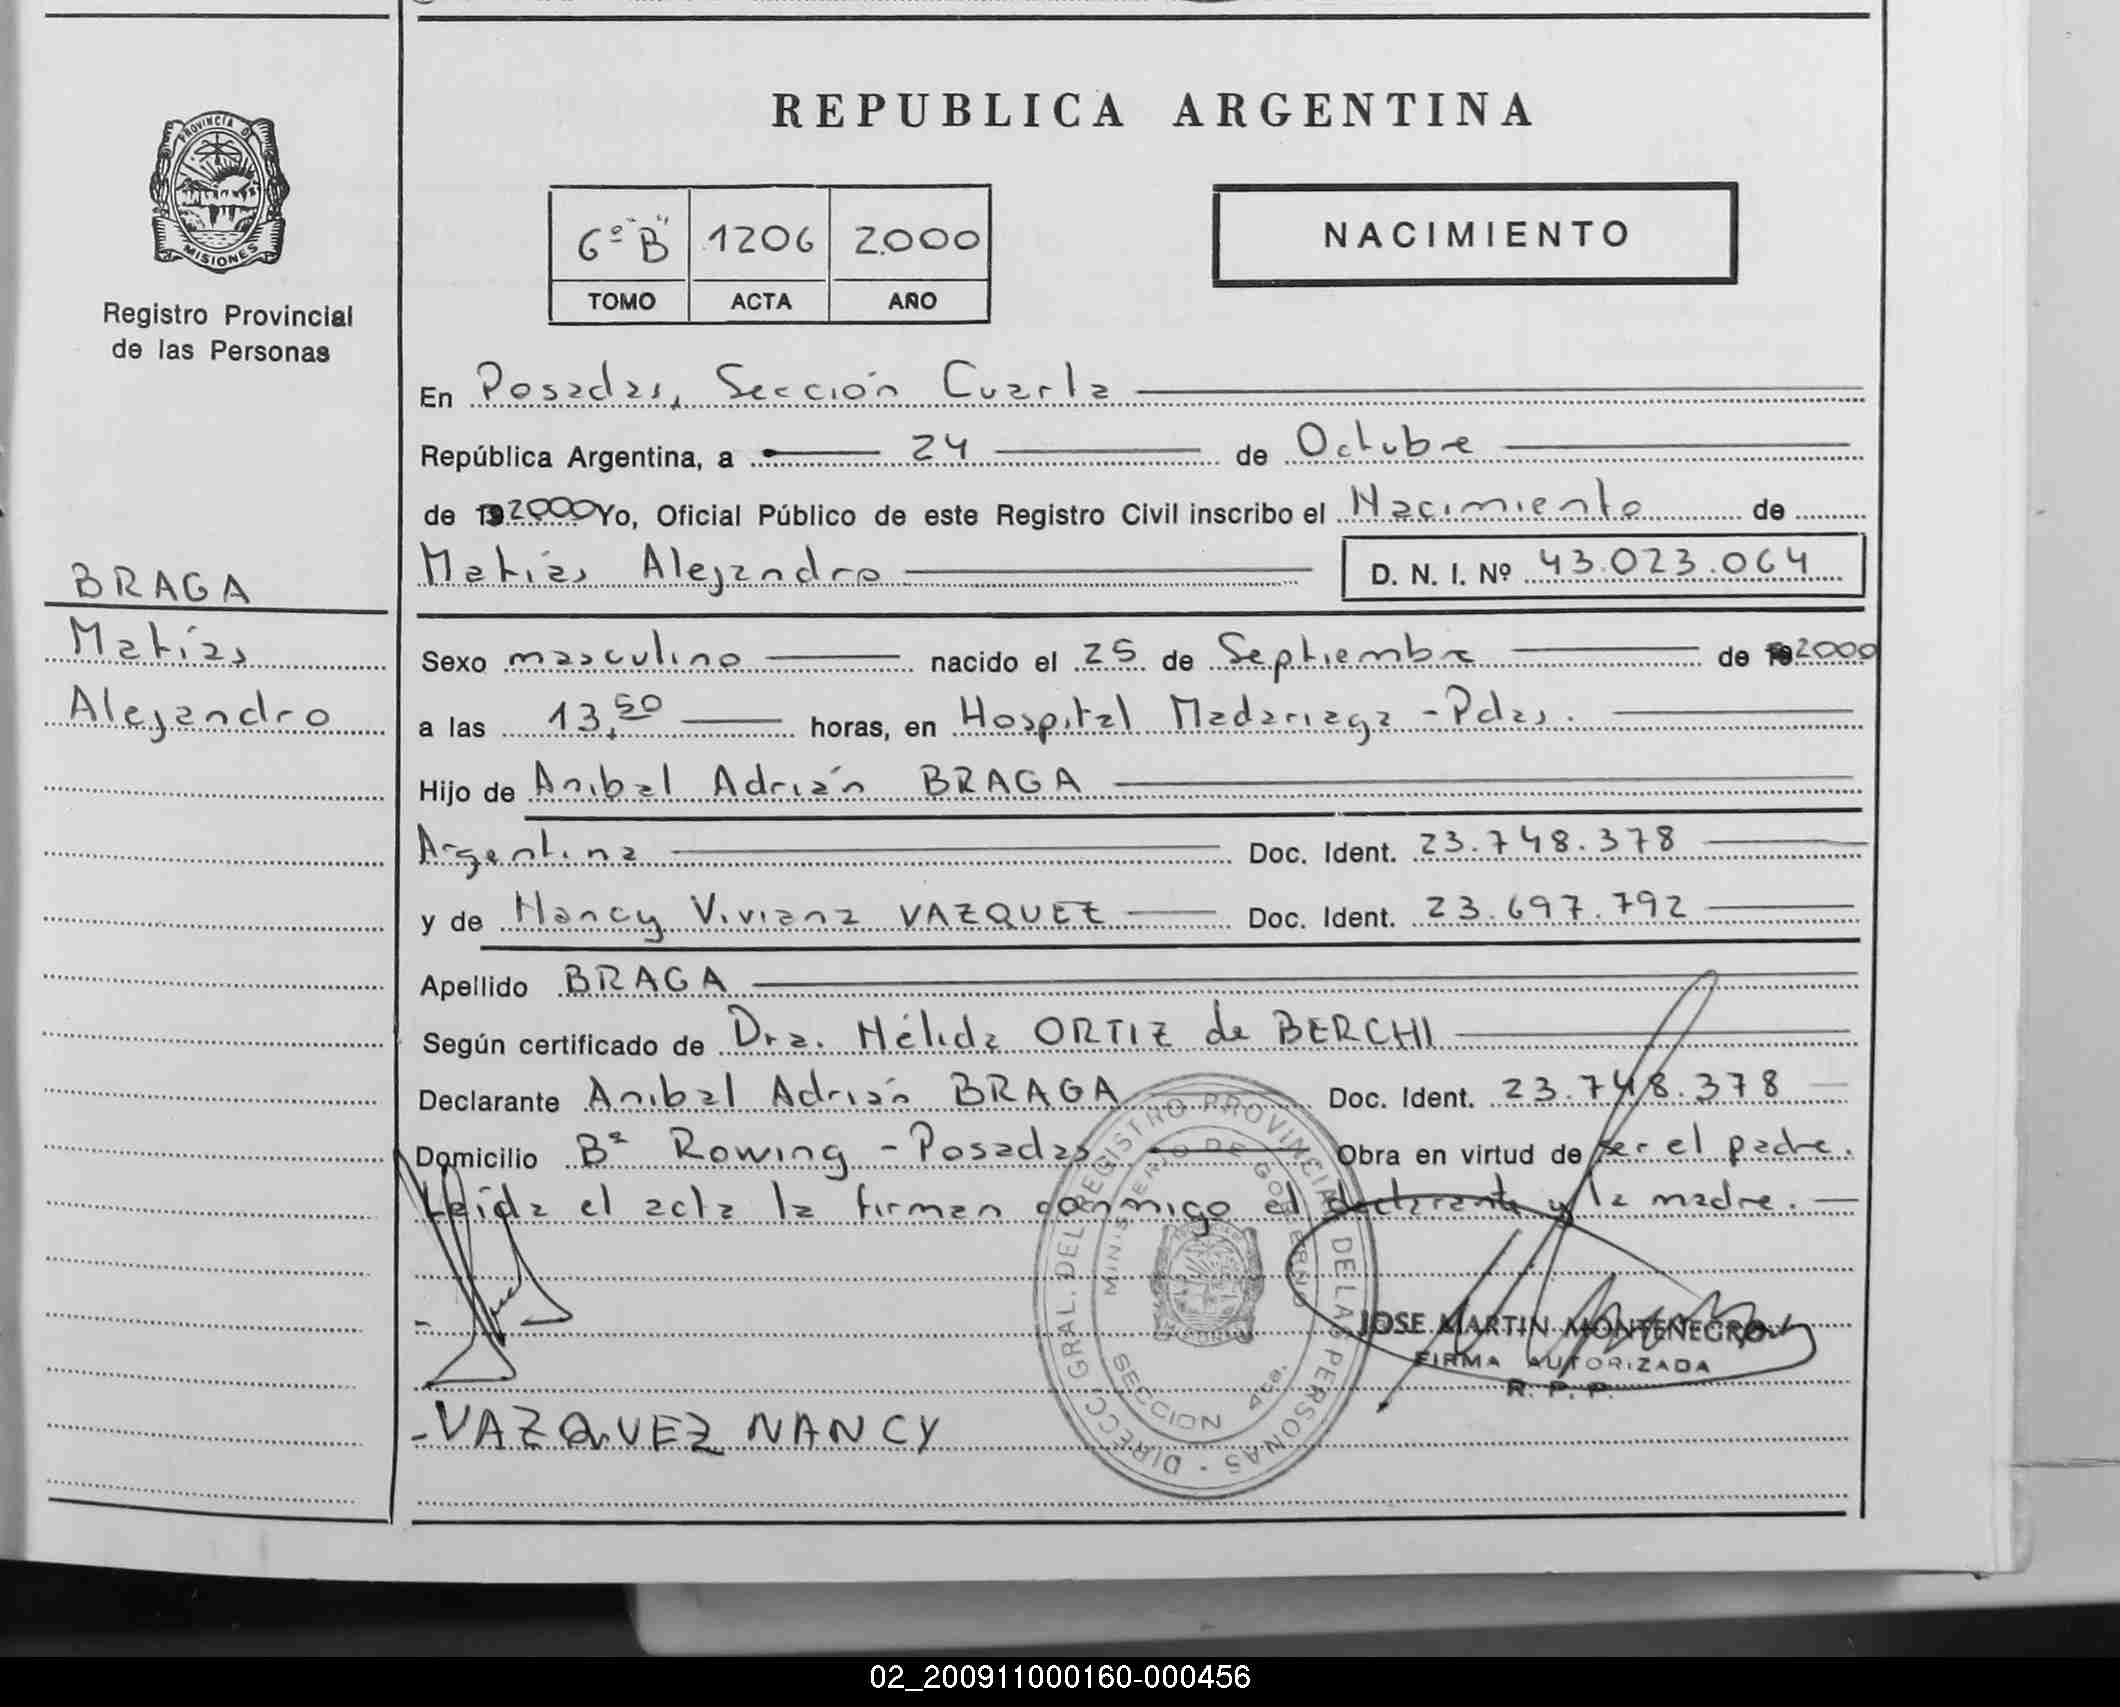 PROVINCIA D
MISIONES
Registro Provincial
de las Personas
BRAGA
Matías
Alejandro
REPUBLICA ARGENTINA
6º "B" 1206 2000
TOMO ACTA AÑO
NACIMIENTO
En Posadas, Sección Cuarta
República Argentina, a 24 de Octubre
de 192000 Yo, Oficial Público de este Registro Civil inscribo el Nacimiento de
Matías Alejandro D. N. I. Nº 43.023.064
Sexo masculino nacido el 25 de Septiembre de 2000
a las 13,50 horas, en Hospital Madariaga - Pdas.
Hijo de Anibal Adrián BRAGA
Argentina Doc. Ident. 23.748.378
y de Nancy Viviana VAZQUEZ Doc. Ident. 23.697.792
Apellido BRAGA
Según certificado de Dra. Nélida ORTIZ de BERCHI
Declarante Anibal Adrián BRAGA Doc. Ident. 23.748.378
Domicilio Bº Rowing - Posadas Obra en virtud de ser el padre.
Leída el acta la firman conmigo el declarante y la madre.
DIRECC. GRAL. DEL REGISTRO PROVINCIAL DE LAS PERSONAS -
MINISTERIO DE GOBIERNO
SECCION 4ta.
JOSE MARTIN MONTENEGRO
FIRMA AUTORIZADA
R. P. P.
- VAZQUEZ NANCY
02_200911000160-000456